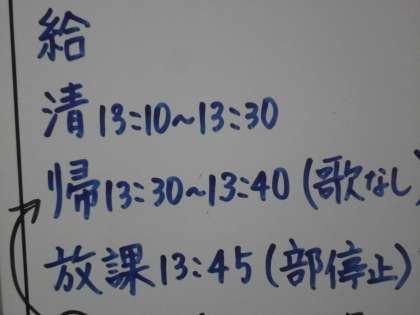 給
清 13:10~13:30
帰 13:30~13:40 (歌なし)
放課 13:45 (部停止)